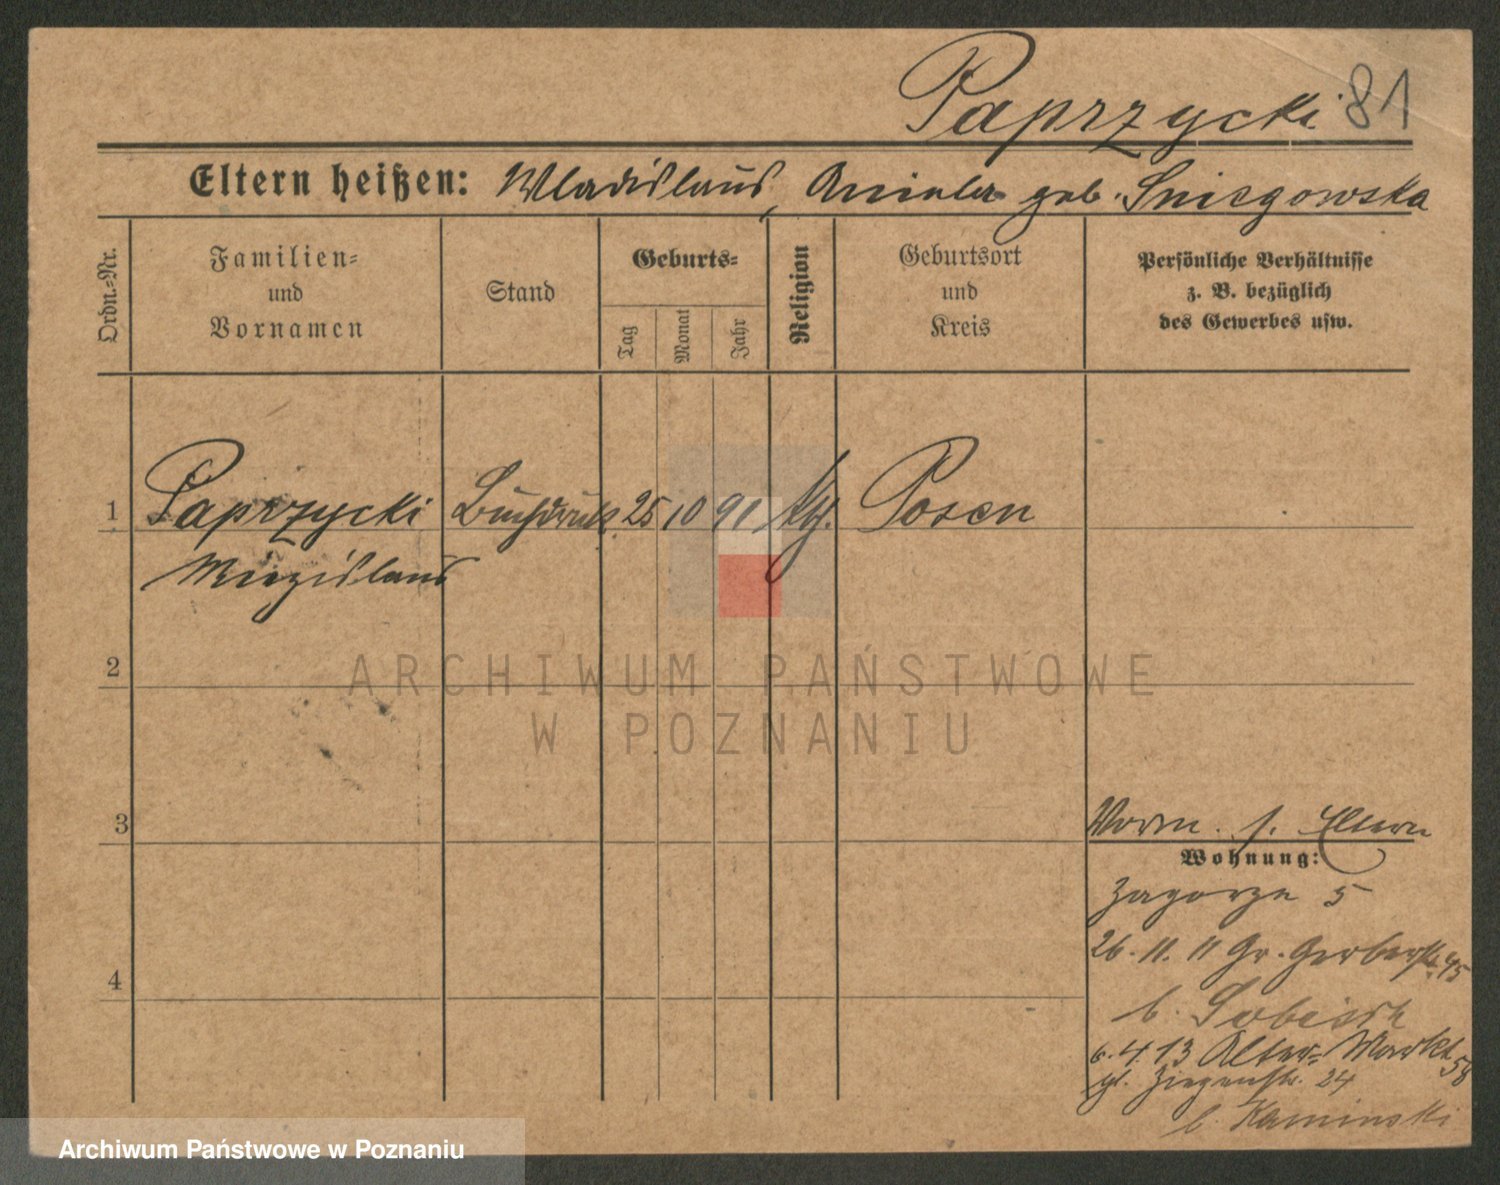 Paprzycki 81
Eltern heißen: Wladislaus, Aniela geb. Sniegowska
Ordn.-Nr.
Familien-
und
Vornamen
Stand
Geburts-
Tag
Monat
Jahr
Religion
Geburtsort
und
Kreis
Persönliche Verhältnisse
z. B. bezüglich
des Gewerbes usw.
1 Paprzycki Buchdruck. 25 10 91 Posen
Miezislaus
2
ARCHIWUM PAŃSTWOWE
W POZNANIU
3
Vorm. s. Eltern
Wohnung:
Zagorze 5
26. 11. 11 Gr. Gerberstr. 45
b.
4
6. 4. 13 Alter Markt 58
Ziegenstr. 24
b. Kaminski
Archiwum Państwowe w Poznaniu